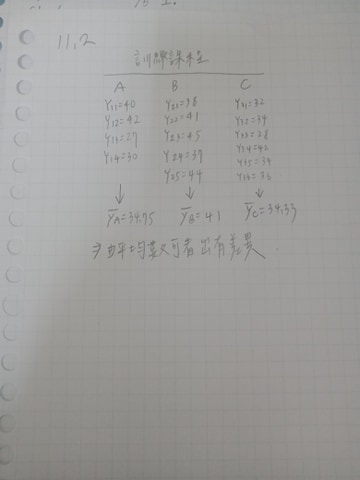 11.2
訓練課程
A B C
Y11=40 Y21=38 Y31=32
Y12=42 Y22=41 Y32=39
Y13=27 Y23=45 Y33=28
Y14=30 Y24=37 Y34=42
Y25=44 Y35=34
Y36=33
ȲA=34.75 ȲB=41 ȲC=34.33
由平均數可看出有差異